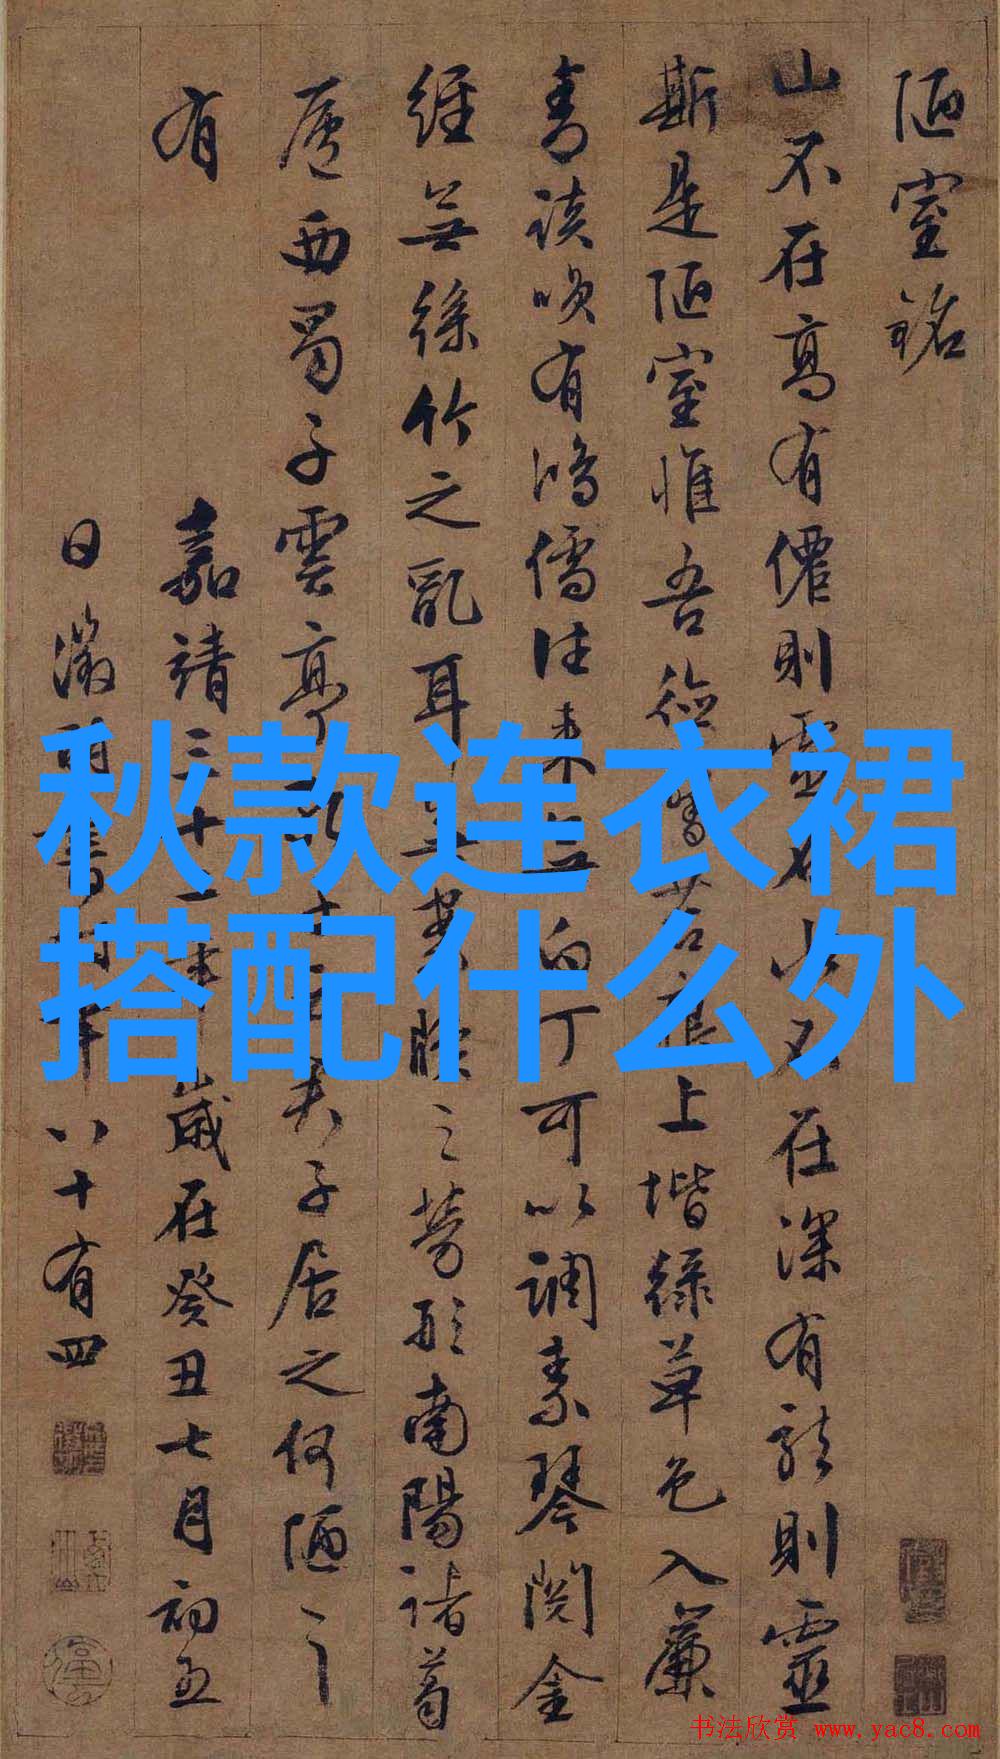 秋款连衣裙
搭配什么外
陋室銘
山不在高有僊則 水不在深有龍則靈
斯是陋室惟吾德馨苔痕上堦綠草色入簾
青談咲有鴻儒往来無白丁可以調素琴閱金
經無絲竹之亂耳無案牘之勞形南陽諸葛
廬西蜀子雲亭 夫子居之何陋之
有
嘉靖三十 年歲在癸丑七月初五
日徵明書時年八十有四
书法欣赏 www.yac8.com